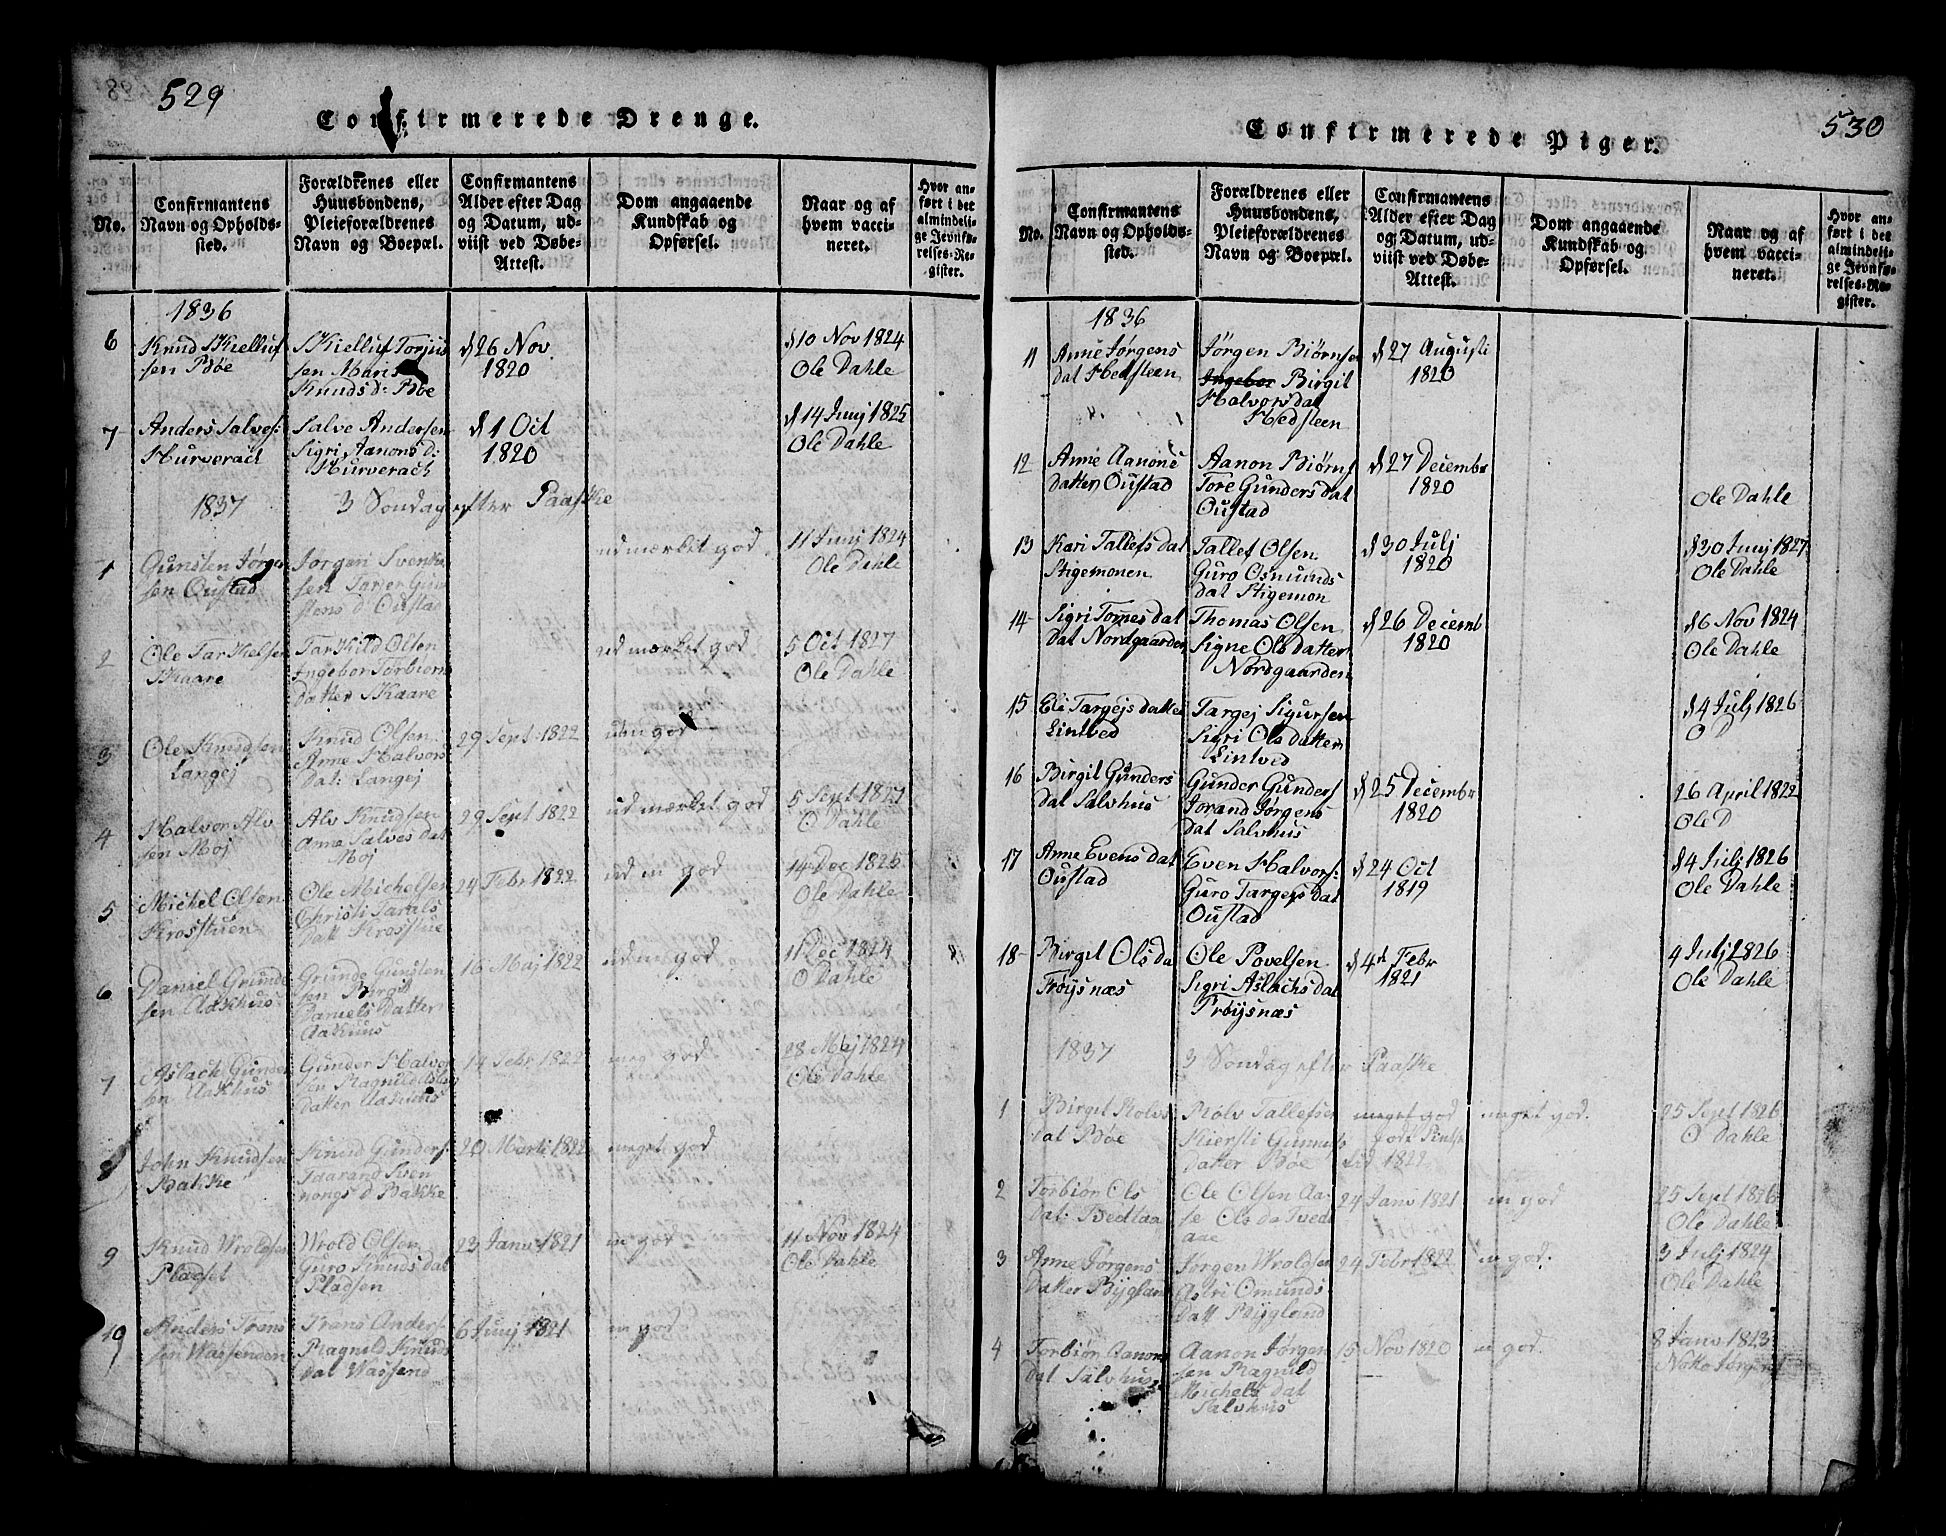 529
Confirmerede Drenge.
No.
Confirmantens
Navn og Opholds-
sted.
Forældrenes eller
Huusbondens,
Pleieforældrenes
Navn og Boepæl.
Confirmantens
Alder efter Dag
og Datum, ud-
viist ved Døbe-
Attest.
Dom angaaende
Kundskab og
Opførsel.
Naar og af
hvem vacci-
neret.
Hvor an-
ført i det
almindeli-
ge Jevnfø-
relses-Re-
gister.
1836
6
Knud Skielluf
sen Bøe
Skielluf Torjus
sen Maris
Knudsd: Bøe
d 26 Nov.
1820
d 10 Nov 1824
Ole Dahle
7
Anders Salves:
Hurverach
Salve Andersen
Sigri Aanons d:
Hurverach
d 1 Oct
1820
d 14 Junj 1825
Ole Dahle
1837
3 Sondag efter Paaske
1
Gunsten Jørgen
sen Oustad
Jørgen Svenke
sen Tarjer Gun
stens d Oustad
udmærket god
11 Junj 1824
Ole Dahle
2
Ole Tarkelsen
Skaare
Tarkild Olsen
Ingebor Torbiørns
Datter Skaare
udmærket god
5 Oct 1827
Ole Dahle
3
Ole Knudsen
Langej
Knud Olsen
Anne Halvors
Dat: Langej
29 Sept 1822
udm god
4
Halvor Alv
sen Moj
Alv Knudsen
Anne Salves dat
Moj
29 Sept 1822
udmærket god
5 Sept 1827
O Dahle
5
Michel Olsen
Krosstuen
Ole Michelsen
Christi Tarals
Datt Krosstue
24 Febr 1822
ud m god
14 Dec 1826
Ole Dahle
6
Daniel Grunde
sen Aakhus
Grunde Gunsten
sen Birgit
Daniels Datter
Aakhuus
16 Maj 1822
ud m god
11 Dec 1824
O Dahle
7
Aslach Gunder
sen Aakhus
Gunder Halvor
sen Ragnild
datter Aakhus
14 Febr 1822
meg god
28 Maj 1824
Ole Dahle
8
John Knudsen
Bakke
Knud Gunders:
Taarand Sven
nongs d Bakke
20 Marti 1822
meget god
9
Knud Wroldsen
Pladset
Wrold Olsen
Guro Knuds dat
Pladsen
23 Janu 1821
m god
11 Nov 1824
Ole Dahle
10
Anders Frans
sen Wassenden
Frans Anders
Ragnild Knuds
dat Wassend
6 Junj 1821
m god
530
Confirmerede Piger.
No.
Confirmantens
Navn og Opholds-
sted.
Forældrenes eller
Huusbondens,
Pleieforældrenes
Navn og Boepæl.
Confirmantens
Alder efter Dag
og Datum, ud-
viist ved Døbe-
Attest.
Dom angaaende
Kundskab og
Opførsel.
Naar og af
hvem vacci-
neret.
Hvor an-
ført i det
almindeli-
ge Jevnfø-
relses-Re-
gister.
1836
11
Anne Jørgens
dat Hedsteen
Jørgen Biørnsen
Ingebor Birgit
Halvorsdat
Hedsteen
d 27 Augusti
1820
12
Anne Aanons
datter Oustad
Aanon Biørns
Tore Gundersdat
Oustad
d 27 Decembr
1820
Ole Dahle
13
Kari Tallefsdat
Stigemonen
Tallef Olsen
Guro Osmunds
dat Stigemon
d 30 Julj
1820
d 30 Junj 1827
Ole Dahle
14
Sigri Tomes dat
dat Nordgaarden
Thomas Olsen
Signe Olsdatter
Nordgaarden
d 26 Decemb
1820
d 6 Nov 1824
Ole Dahle
15
Eli Targejs datter
Lintved
Targej Sigursen
Sigri Ols datter
Lintved
d 4 Julj 1826
O D
16
Birgit Gunders
dat Salvhus
Gunder Gunders
Jorand Jørgens
dat Salvhus
d 25 Decembr
1820
26 April 1822
Ole D
17
Anne Evens dat
Oustad
Even Halvors:
Guro Targejs dat
Oustad
d 24 Oct
1819
d 4 Julj 1826
Ole Dahle
18
Birgit Ols da
Frøysnæs
Ole Povelsen
Sigri Aslachs dat
Frøysnæs
d 4 Febr
1821
4 Julj 1826
Ole Dahle
1837
3 Sondag efter Paaske
1
Birgit Rolvs
dat Bøe
Rolv Tallefsen
Kiersti Gunnuls
datter Bøe
meget god
1822
meget god.
25 Sept 1826
O Dahle
2
Torbiør Ols
dat: Tvedtaa
Ole Olsen Aa-
se Ols da Tvedt
aae
24 Janv 1821
m god
25 Sept 1826
Ole Dahle
3
Anne Jørgens
datter Bygland
Jørgen Wroldsen
Astri Omunds
Datt Bygland
24 Febr 1822
m god.
3 Julj 1824
Ole Dahle
4
Torbiør Aanons
dat Salvhus
Aanon Jørgen
sen Ragnild
Michels dat
Salvhus
15 Nov 1820
m god.
8 Janv 1823